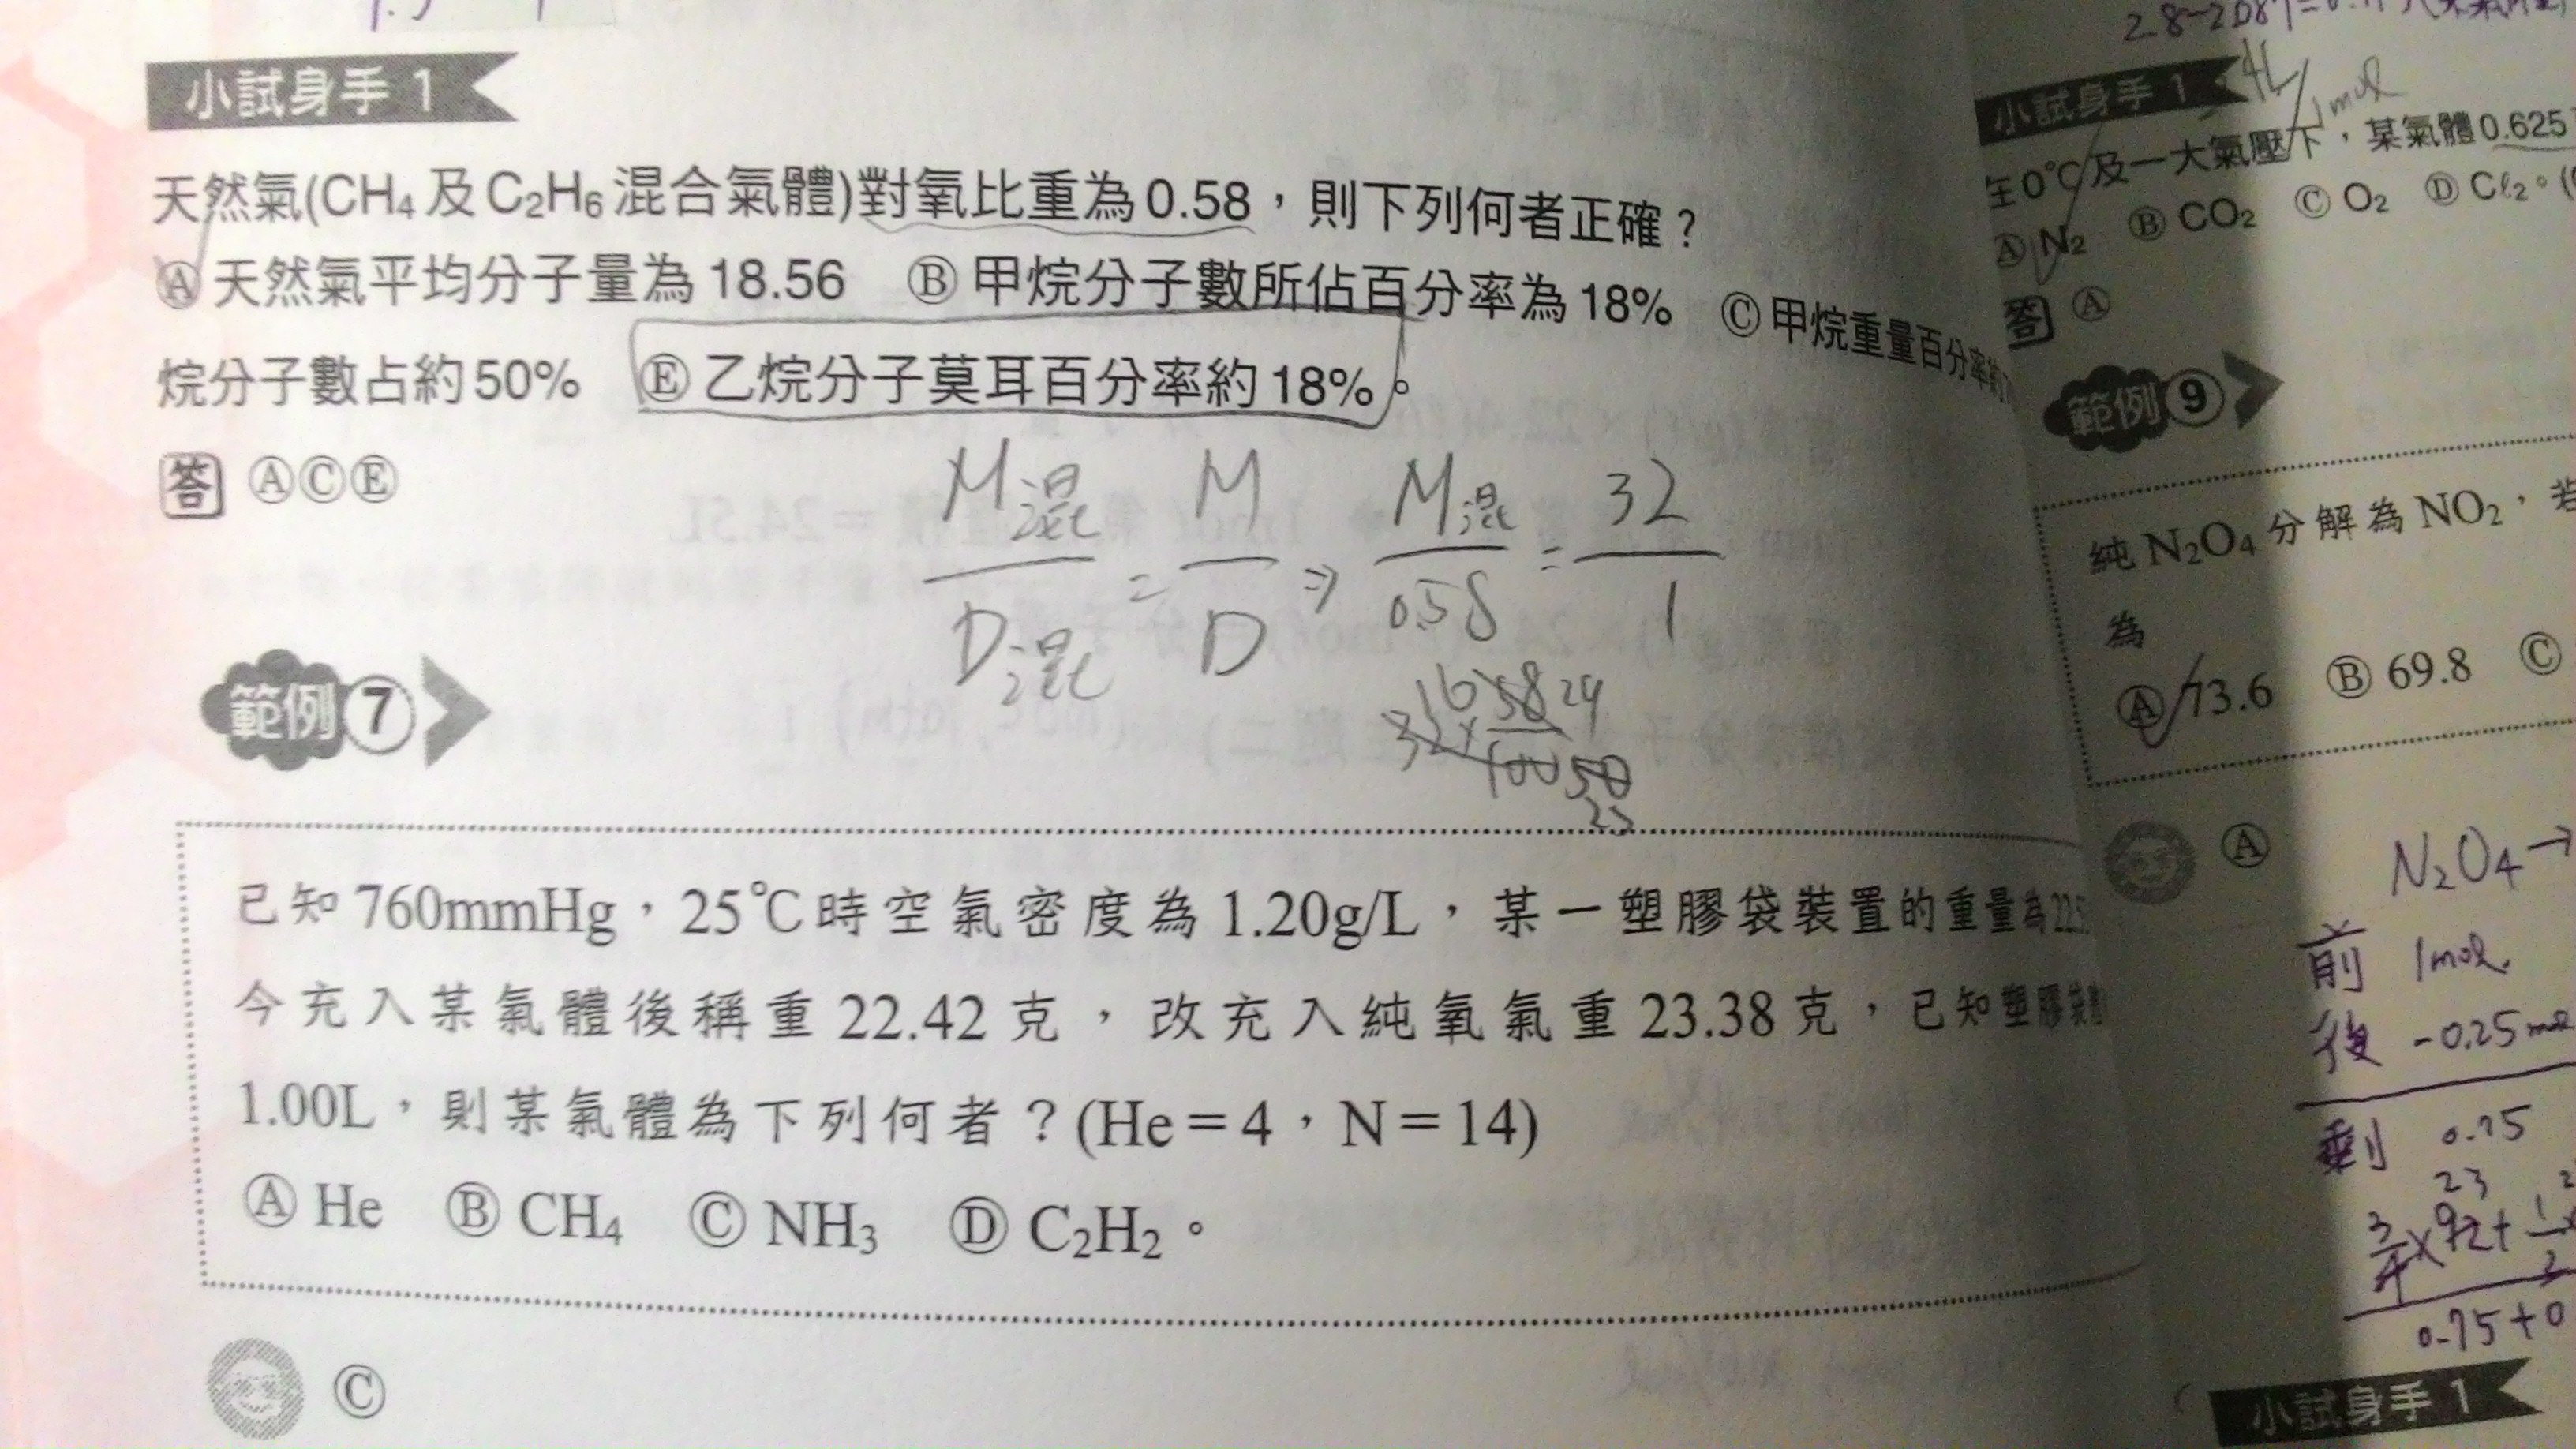 小試身手 1
天然氣(CH₄及C₂H₆混合氣體)對氧比重為0.58，則下列何者正確？
Ⓐ天然氣平均分子量為18.56 Ⓑ甲烷分子數所佔百分率為18% Ⓒ甲烷重量百分率約
烷分子數占約50% Ⓔ乙烷分子莫耳百分率約18%。
答 ⒶⒸⒺ
M混/D混 = M/D ⇒ M混/0.58 = 32/1
16 58 29
32 × 100 50
25
範例 7
已知760mmHg，25℃時空氣密度為1.20g/L，某一塑膠袋裝置的重量為22.5
今充入某氣體後稱重22.42克，改充入純氧氣重23.38克，已知塑膠袋
1.00L，則某氣體為下列何者？(He＝4，N＝14)
Ⓐ He Ⓑ CH₄ Ⓒ NH₃ Ⓓ C₂H₂。
Ⓒ
小試身手 1
1mol
在0℃及一大氣壓下，某氣體0.625
Ⓐ N₂ Ⓑ CO₂ Ⓒ O₂ Ⓓ Cℓ₂。
答 Ⓐ
範例 9
純N₂O₄分解為NO₂，若
為
Ⓐ 73.6 Ⓑ 69.8 Ⓒ
Ⓐ
N₂O₄→
前 1mol
後 -0.25mol
剩 0.75
23
3/4×92+
0.75+0
小試身手 1